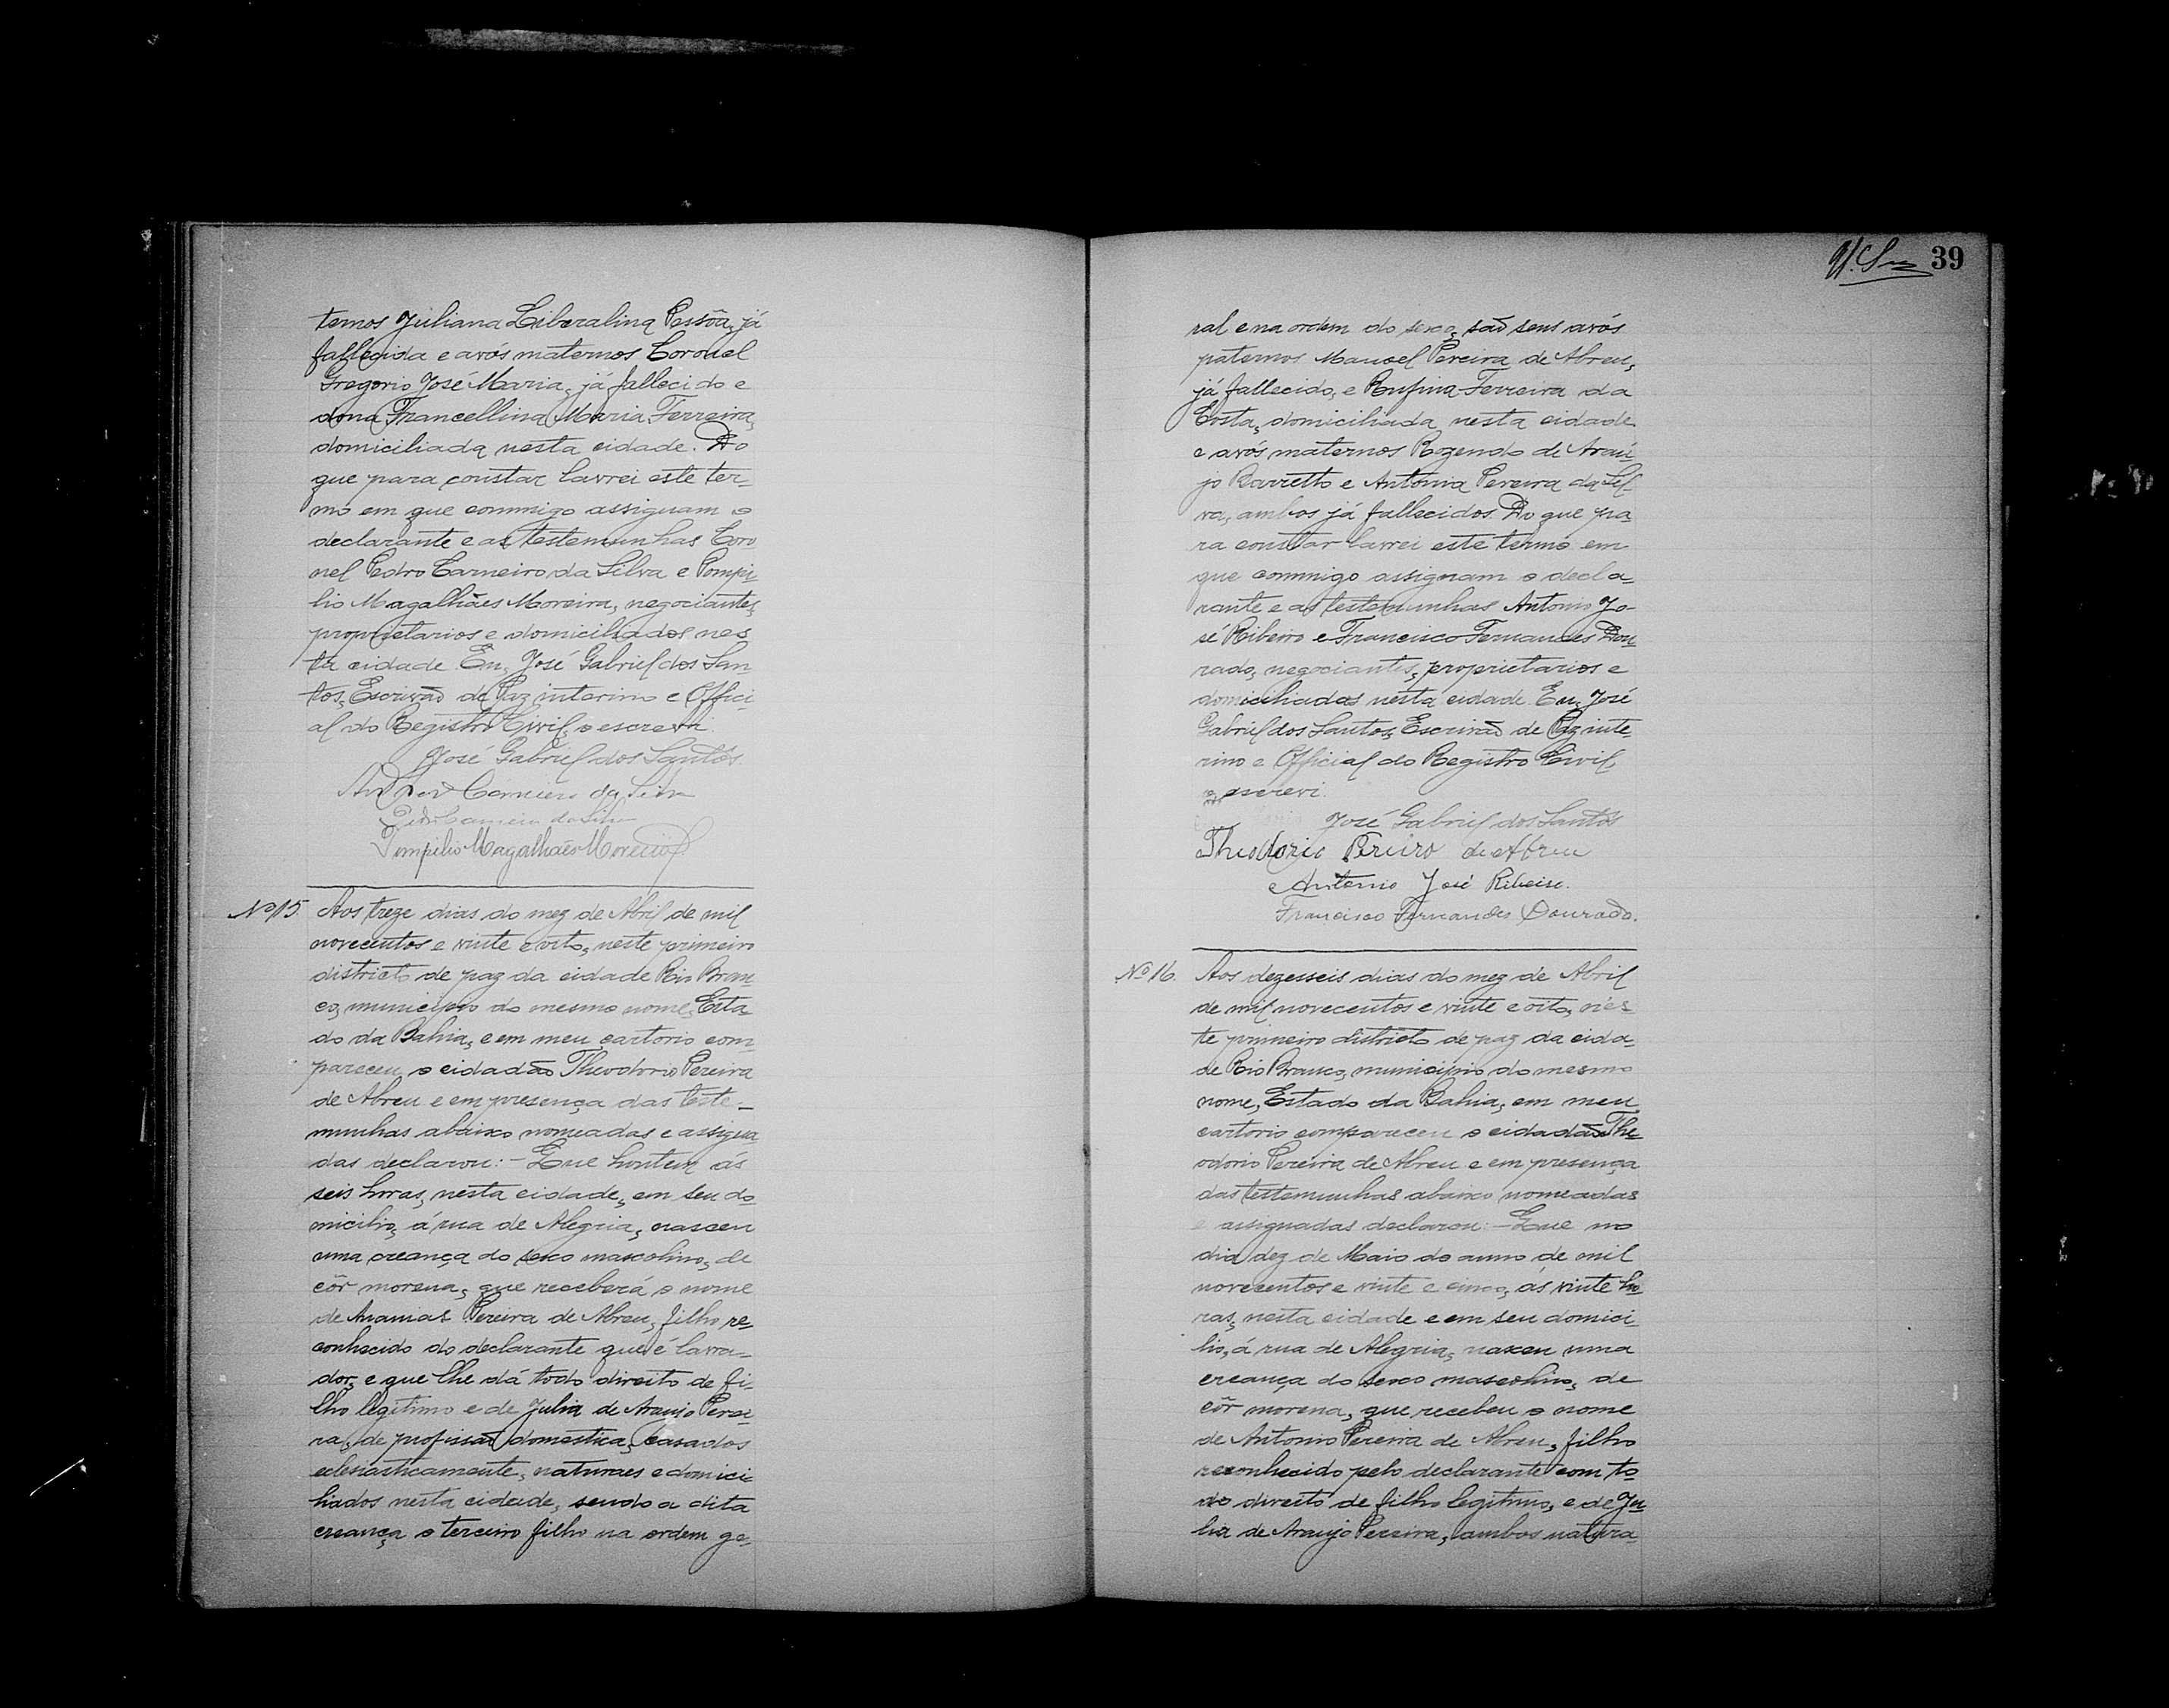 ternos Juliana Liberalina Pessôa, já
fallecida e avós maternos Coronel
Gregorio José Maria, já fallecido e
dona Francellina Maria Ferreira,
domiciliada nesta cidade. Do
que para constar lavrei este ter-
mo em que commigo assignam o
declarante e as testemunhas Coro
nel Pedro Carneiro da Silva e Pompi-
lio Magalhães Moreira, negociantes,
proprietarios e domiciliados nes-
ta cidade Eu, José Gabriel dos San-
tos, Escrivão de Paz interino e Offici-
al do Registro Civil, o escrevi.
José Gabriel dos Santos.
Carneiro da Silva
Pedro Carneiro da Silva
Pompilio Magalhães Moreira
Nº 15. Aos treze dias do mez de Abril de mil
novecentos e vinte e oito, neste primeiro
districto de paz da cidade Rio Bran-
co, municipio do mesmo nome, Esta-
do da Bahia, e em meu cartorio com-
pareceu o cidadão Theodorio Pereira
de Abreu e em presença das teste-
munhas abaixo nomeadas e assigna
das declarou:- Que hontem ás
seis horas, nesta cidade, em seu do
micilio, á rua de Alegria, nasceu
uma creança do sexo mascolino, de
côr morena, que receberá o nome
de Ananias Pereira de Abreu, filho re-
conhecido do declarante que é lavra-
dor, e que lhe dá todo direito de fi-
lho legitimo e de Julia de Araujo Perei-
ra, de profissão domestica, casados
eclesiasticamente, naturaes e domici-
liados nesta cidade, sendo a dita
creança o terceiro filho na ordem ge-
39
ral e na ordem do sexo, são seus avós
paternos Manoel Pereira de Abreu,
já fallecido, e Rufina Ferreira da
Costa, domiciliada nesta cidade
e avós maternos Rozendo de Araú-
jo Barretto e Antonia Pereira da Sil-
va, ambos já fallecidos. Do que pa-
ra constar lavrei este termo em
que commigo assignam o decla-
rante e as testemunhas Antonio Jo-
sé Ribeiro e Francisco Fernandes Dou
rado, negociantes, proprietarios e
domiciliados nesta cidade. Eu, José
Gabriel dos Santos, Escrivão de Paz inte-
rino e Official do Registro Civil
o escrevi.
José Gabriel dos Santos
Theodorio Pereira de Abreu
Antonio José Ribeiro.
Francisco Fernandes Dourado.
Nº 16. Aos dezesseis dias do mez de Abril
de mil novecentos e vinte e oito, nes-
te primeiro districto de paz da cida-
de Rio Branco, municipio do mesmo
nome, Estado da Bahia, em meu
cartorio compareceu o cidadão The-
odorio Pereira de Abreu e em presença
das testemunhas abaixo nomeadas
e assignadas declarou:- Que no
dia dez de Maio do anno de mil
novecentos e vinte e cinco, ás vinte ho
ras, nesta cidade e em seu domici-
lio, á rua de Alegria, nasceu uma
creança do sexo mascolino, de
côr morena, que recebeu o nome
de Antonio Pereira de Abreu, filho
reconhecido pelo declarante com to-
do direito de filho legitimo, e de Ju-
lia de Araujo Pereira, ambos natura-